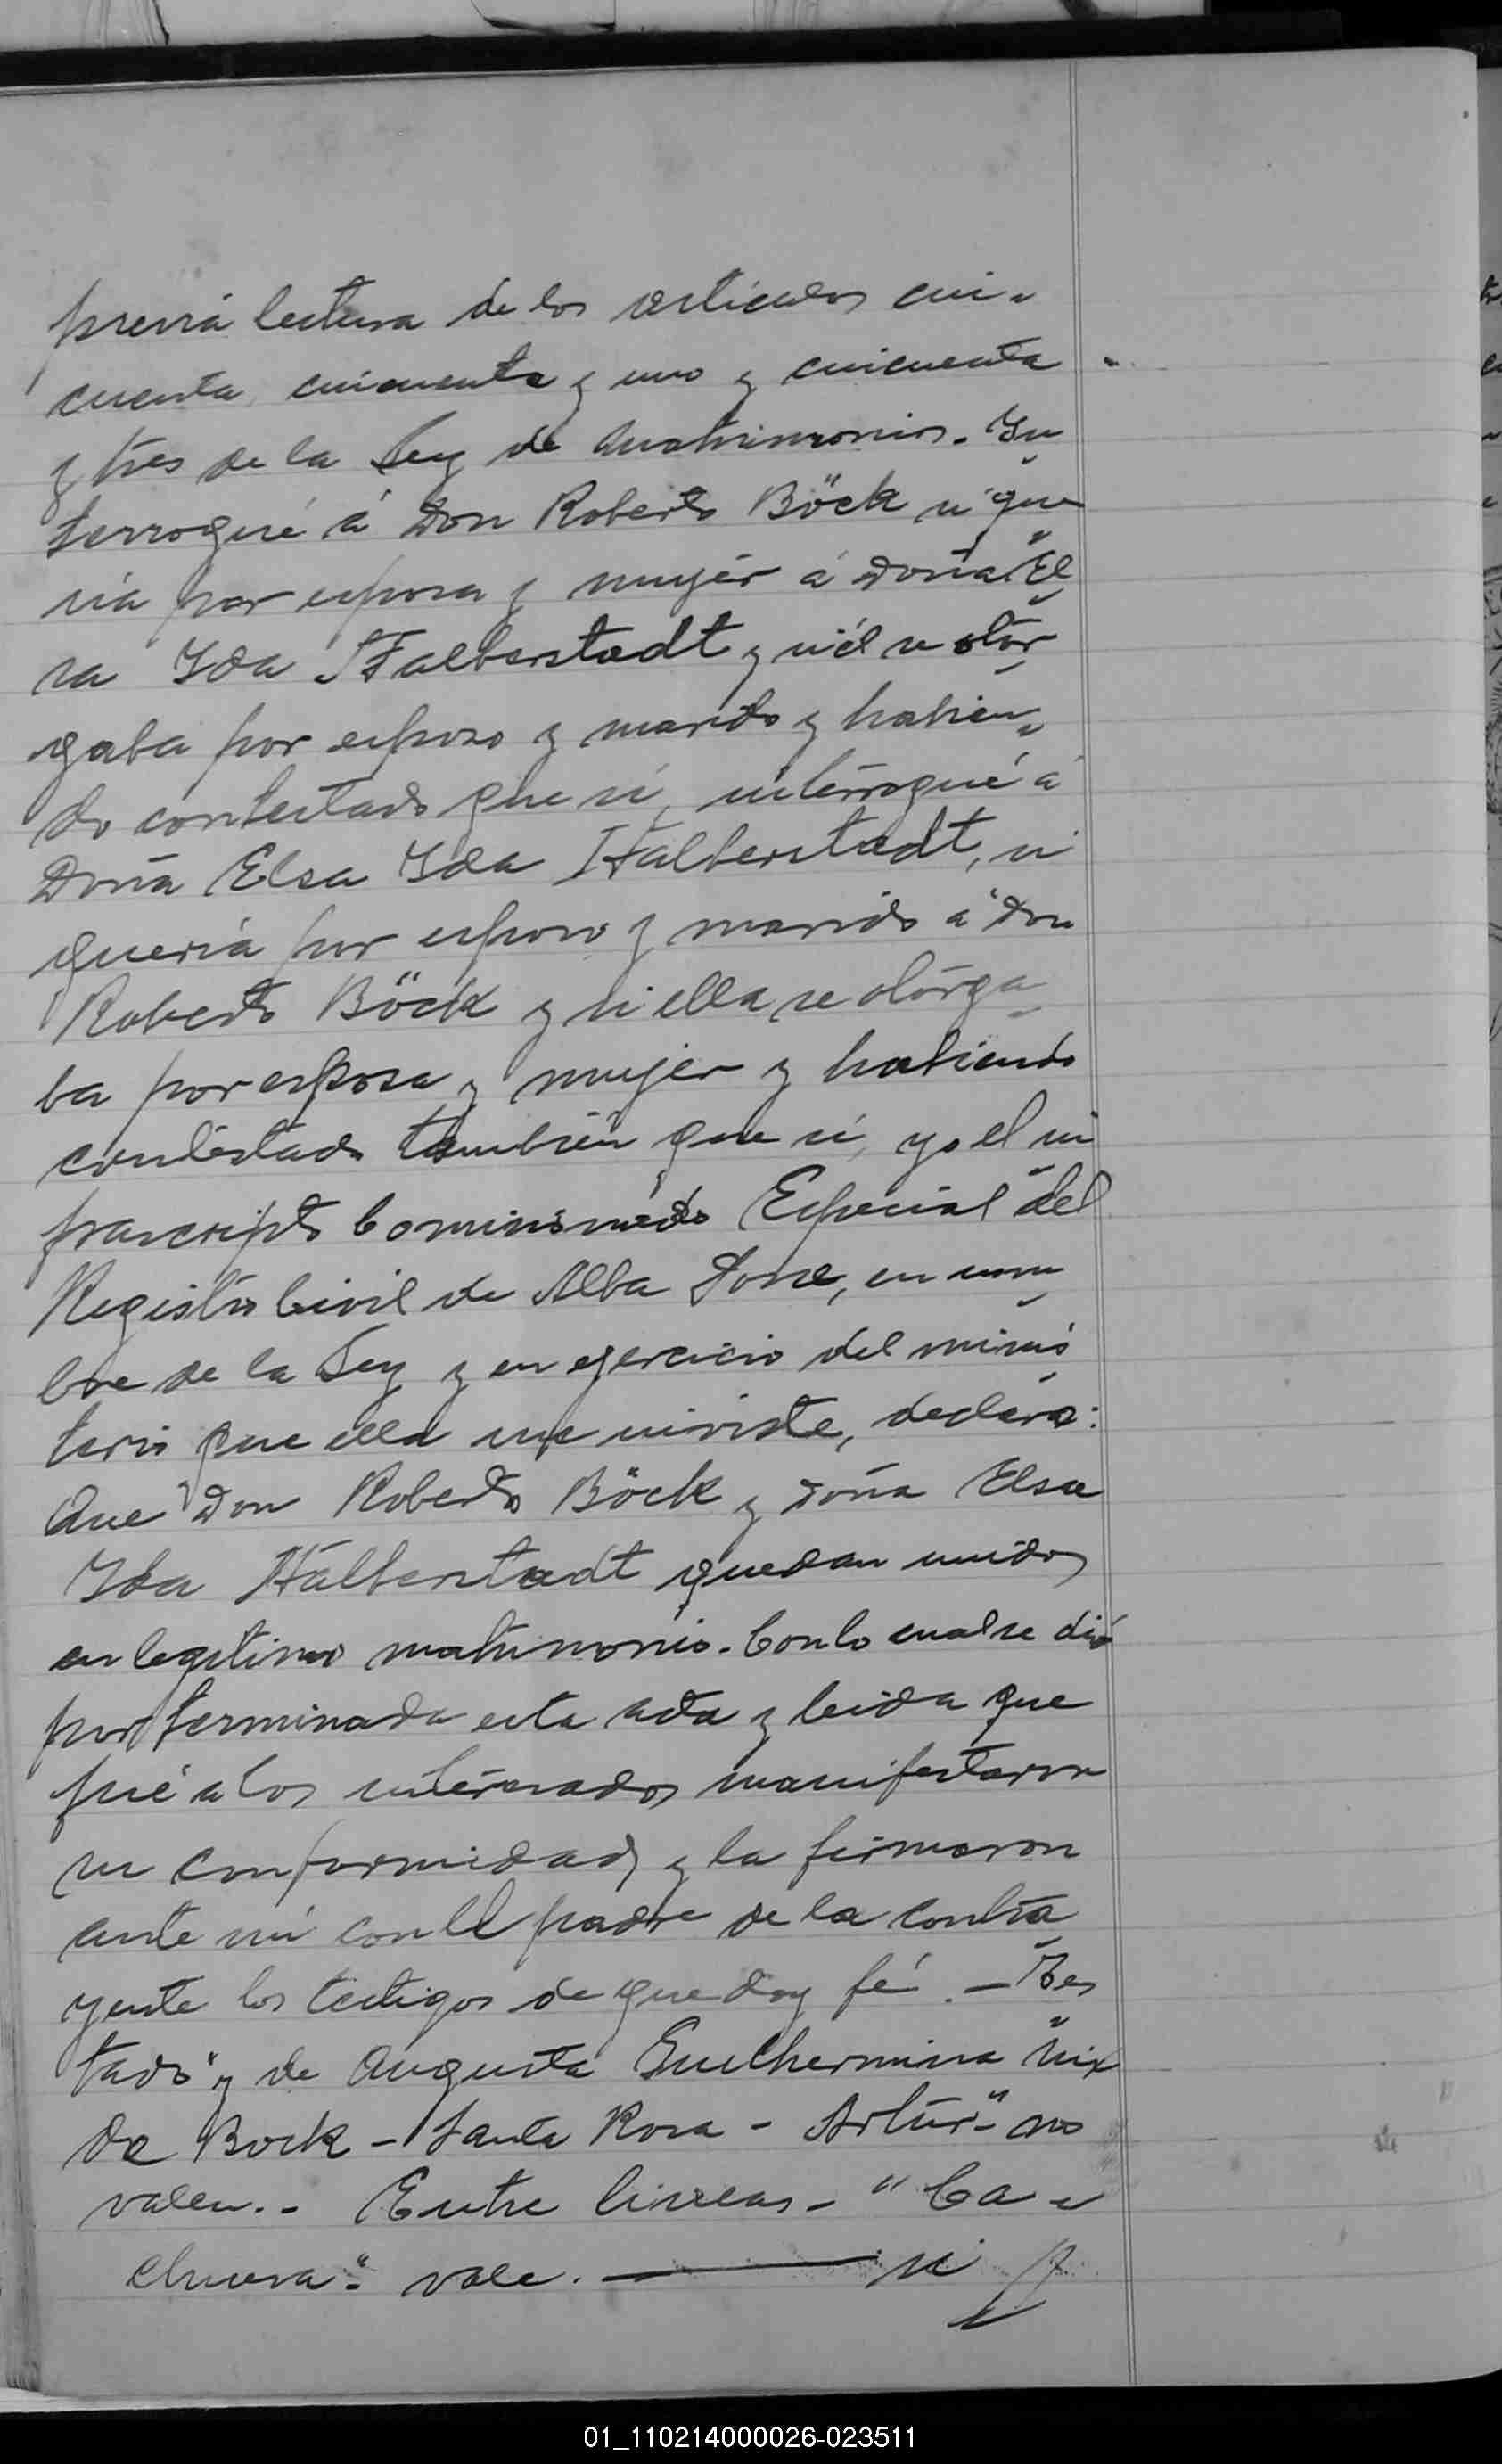 previa lectura de los articulos cin-
cuenta, cincuenta y uno y cincuenta
y tres de la Ley de Matrimonios. In
terrogué á Don Roberto Böck si que
ria por esposa y mujer á Doña El
sa Ida Halberstadt y si él se otor
gaba por esposo y marido y habien
do contestado que si, interrogué á
Doña Elsa Ida Halberstadt, si
queria por esposo y marido á Don
Roberto Böck y si ella se otorga
ba por esposa y mujer y habiendo
contestado también que si, yo el in
frascripto Comisionado Especial del
Registro Civil de Alba Posse, en nom
bre de la Ley y en ejercicio del minis
terio que ella me inviste, declaro:
Que Don Roberto Böck y Doña Elsa
Ida Halberstadt quedan unidos
en legitimo matrimonio. Con lo cual se dió
por terminada esta acta y leida que
fué a los interesados manifestaron
su conformidad y la firmaron
ante mi con el padre de la contra
yente los testigos de que doy fé. - Tes
tado "y de Augusta Guilhermina Nix
de Bock - Santa Rosa - Artur" - no
valen. - Entre lineas - "Ca-
chuera" - vale.
01_110214000026-023511